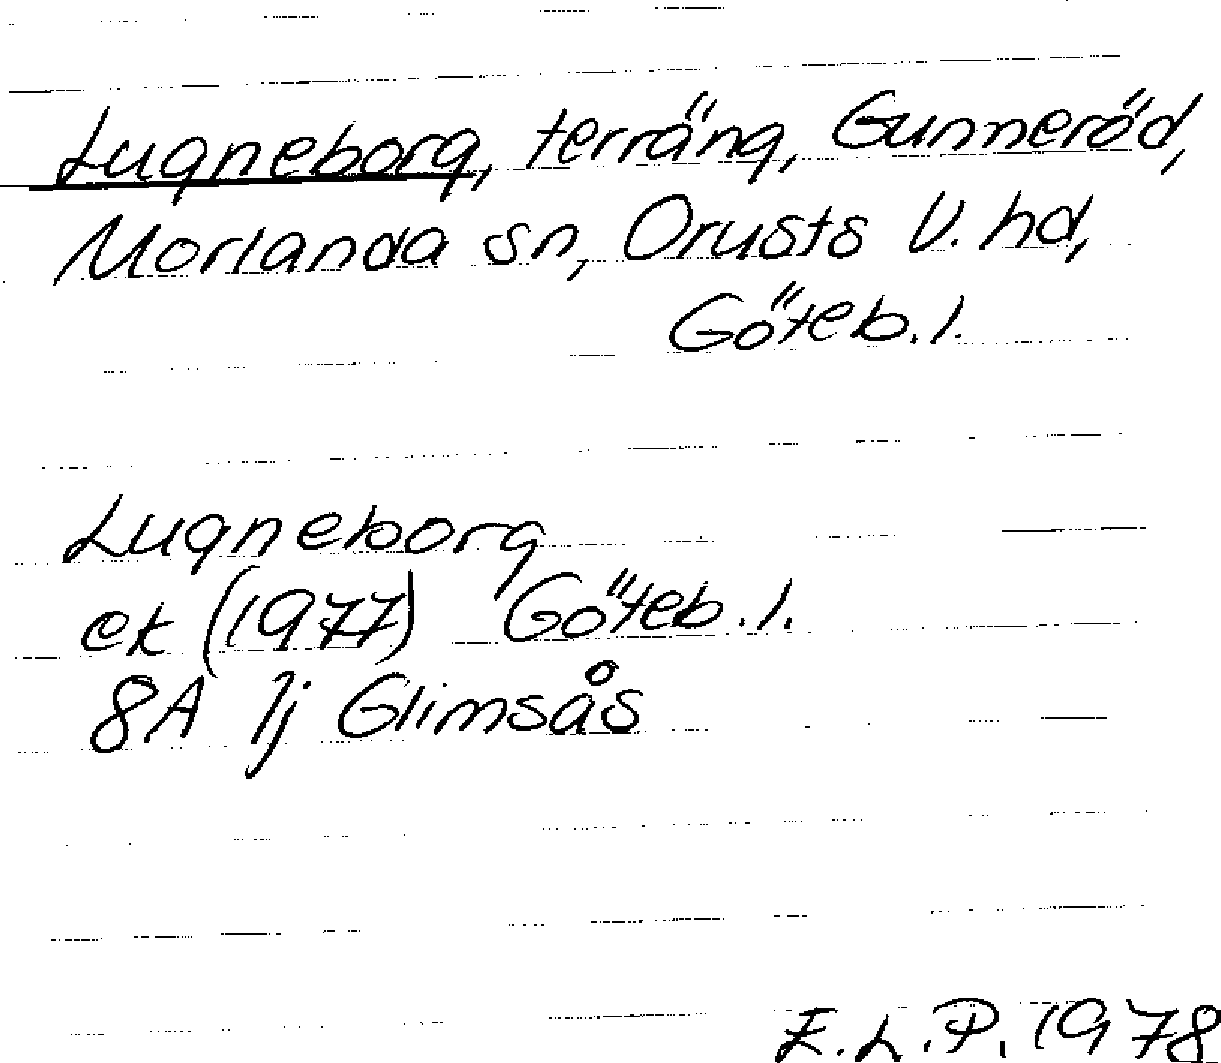 Lugneborg, terräng, Gunneröd,
Morlanda sn, Orusts V. hd,
Göteb. l.
Lugneborg
ek (1977) Göteb. l.
8A 1j Glimsås
E. L. P. 1978